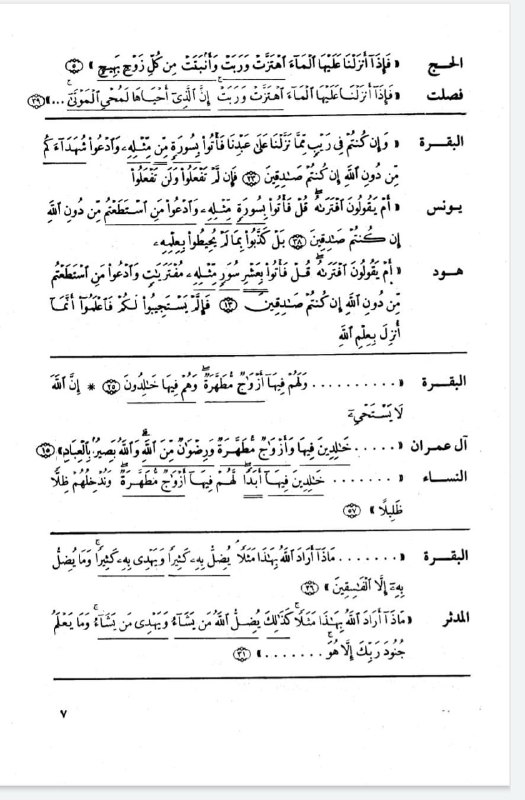 الحج « فَإِذَآ أَنزَلْنَا عَلَيْهَا ٱلْمَآءَ ٱهْتَزَّتْ وَرَبَتْ وَأَنۢبَتَتْ مِن كُلِّ زَوْجٍۭ بَهِيجٍ » ٥
فصلت « فَإِذَآ أَنزَلْنَا عَلَيْهَا ٱلْمَآءَ ٱهْتَزَّتْ وَرَبَتْ ۚ إِنَّ ٱلَّذِىٓ أَحْيَاهَا لَمُحْىِ ٱلْمَوْتَىٰٓ ... » ٣٩
البقرة « وَإِن كُنتُمْ فِى رَيْبٍ مِّمَّا نَزَّلْنَا عَلَىٰ عَبْدِنَا فَأْتُوا۟ بِسُورَةٍ مِّن مِّثْلِهِۦ وَٱدْعُوا۟ شُهَدَآءَكُم
مِّن دُونِ ٱللَّهِ إِن كُنتُمْ صَـٰدِقِينَ ٢٣ فَإِن لَّمْ تَفْعَلُوا۟ وَلَن تَفْعَلُوا۟
يونس « أَمْ يَقُولُونَ ٱفْتَرَىٰهُ ۖ قُلْ فَأْتُوا۟ بِسُورَةٍ مِّثْلِهِۦ وَٱدْعُوا۟ مَنِ ٱسْتَطَعْتُم مِّن دُونِ ٱللَّهِ
إِن كُنتُمْ صَـٰدِقِينَ ٣٨ بَلْ كَذَّبُوا۟ بِمَا لَمْ يُحِيطُوا۟ بِعِلْمِهِۦ
هود « أَمْ يَقُولُونَ ٱفْتَرَىٰهُ ۖ قُلْ فَأْتُوا۟ بِعَشْرِ سُوَرٍ مِّثْلِهِۦ مُفْتَرَيَـٰتٍ وَٱدْعُوا۟ مَنِ ٱسْتَطَعْتُم
مِّن دُونِ ٱللَّهِ إِن كُنتُمْ صَـٰدِقِينَ ١٣ فَإِلَّمْ يَسْتَجِيبُوا۟ لَكُمْ فَٱعْلَمُوٓا۟ أَنَّمَآ
أُنزِلَ بِعِلْمِ ٱللَّهِ
البقرة « .......... وَلَهُمْ فِيهَآ أَزْوَٰجٌ مُّطَهَّرَةٌ ۖ وَهُمْ فِيهَا خَـٰلِدُونَ ٢٥ * إِنَّ ٱللَّهَ
لَا يَسْتَحْىِۦٓ
آل عمران « ..... خَـٰلِدِينَ فِيهَا وَأَزْوَٰجٌ مُّطَهَّرَةٌ وَرِضْوَٰنٌ مِّنَ ٱللَّهِ ۗ وَٱللَّهُ بَصِيرٌۢ بِٱلْعِبَادِ » ١٥
النساء « ....... خَـٰلِدِينَ فِيهَآ أَبَدًا ۖ لَّهُمْ فِيهَآ أَزْوَٰجٌ مُّطَهَّرَةٌ ۖ وَنُدْخِلُهُمْ ظِلًّا
ظَلِيلًا » ٥٧
البقرة « ....... مَاذَآ أَرَادَ ٱللَّهُ بِهَـٰذَا مَثَلًا ۘ يُضِلُّ بِهِۦ كَثِيرًا وَيَهْدِى بِهِۦ كَثِيرًا ۚ وَمَا يُضِلُّ
بِهِۦٓ إِلَّا ٱلْفَـٰسِقِينَ » ٢٦
المدثر « مَاذَآ أَرَادَ ٱللَّهُ بِهَـٰذَا مَثَلًا ۚ كَذَٰلِكَ يُضِلُّ ٱللَّهُ مَن يَشَآءُ وَيَهْدِى مَن يَشَآءُ ۚ وَمَا يَعْلَمُ
جُنُودَ رَبِّكَ إِلَّا هُوَ ۚ ....... » ٣١
٧